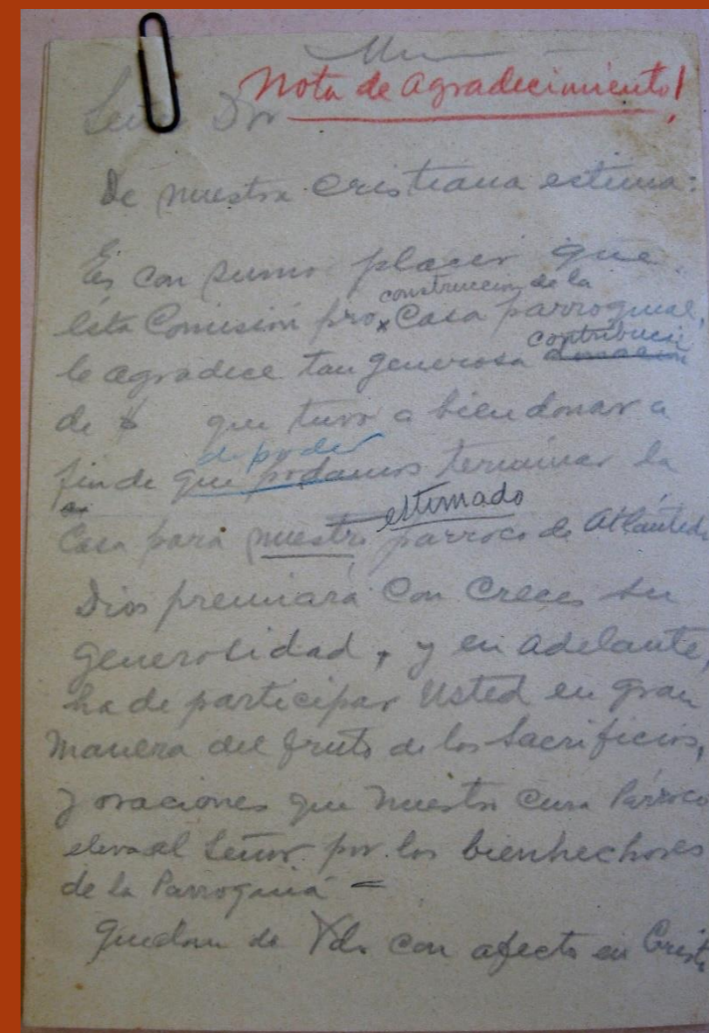 Nota de agradecimiento!
Señor Dr
De nuestra Cristiana estima:
Es con sumo placer que
construccion de la
ésta Comisión pro x Casa parroquial,
contribucie
le agradece tan generosa donación
de $ que tuvo a bien donar a
de poder
fin de que podamos terminar la
estimado
Casa para nuestro parroco de Atlántida
Dios premiará con creces su
generosidad, y en adelante,
ha de participar Usted en gran
manera del fruto de los Sacrificios,
y oraciones que nuestro Cura Párroco
eleva al Señor por los bienhechores
de la Parroquia =
quedan de Vds con afecto en Cristo